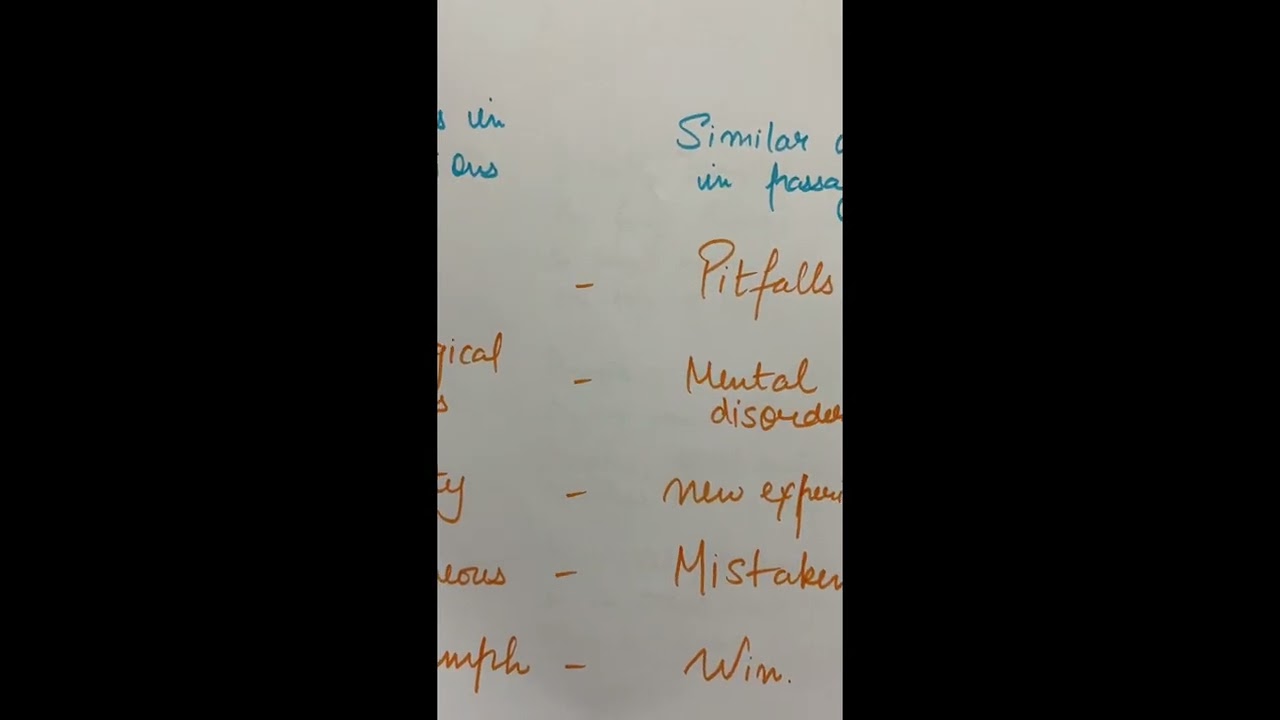 s in
ions
Similar
in passa
- Pitfalls
gical
s
- Mental
disorde
ty - new experi
eous - Mistaken
mph - Win.